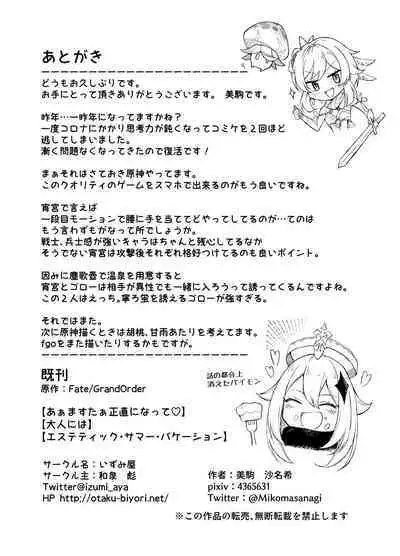 あとがき
どうもお久しぶりです。
お手にとって頂きありがとうございます。 美駒です。
昨年…一昨年になってますかね?
一度コロナにかかり思考力が鈍くなってコミケを2回ほど
逃してしまいました。
漸く問題なくなってきたので復活です!
まぁそれはさておき原神やってます。
このクオリティのゲームをスマホで出来るのがもう良いですね。
宵宮で言えば
一段目モーションで腰に手を当ててどやってしてるのが…てのは
もう言わずもがなって所でしょうか。
戦士、兵士感が強いキャラはちゃんと残心してるなか
そうでない宵宮は攻撃後それぞれ格好つけてるのも良いポイント。
因みに塵歌壺で温泉を用意すると
宵宮とゴローは相手が異性でも一緒に入ろうって誘ってくるんですよね。
この2人はえっち。寧ろ蛍を誘えるゴローが強すぎる。
それではまた。
次に原神描くときは胡桃、甘雨あたりを考えてます。
fgoをまた描いたりするかもですが。
話の都合上
消えたパイモン
既刊
原作:Fate/GrandOrder
【あぁますたぁ正直になって♡】
【大人には】
【エステティック・サマー・バケーション】
サークル名:いずみ屋
サークル主:和泉 彪
Twitter@izumi_aya
HP http;//otaku-biyori.net/
作者:美駒 沙名希
pixiv:4365631
Twitter:@Mikomasanagi
※この作品の転売、無断転載を禁止します